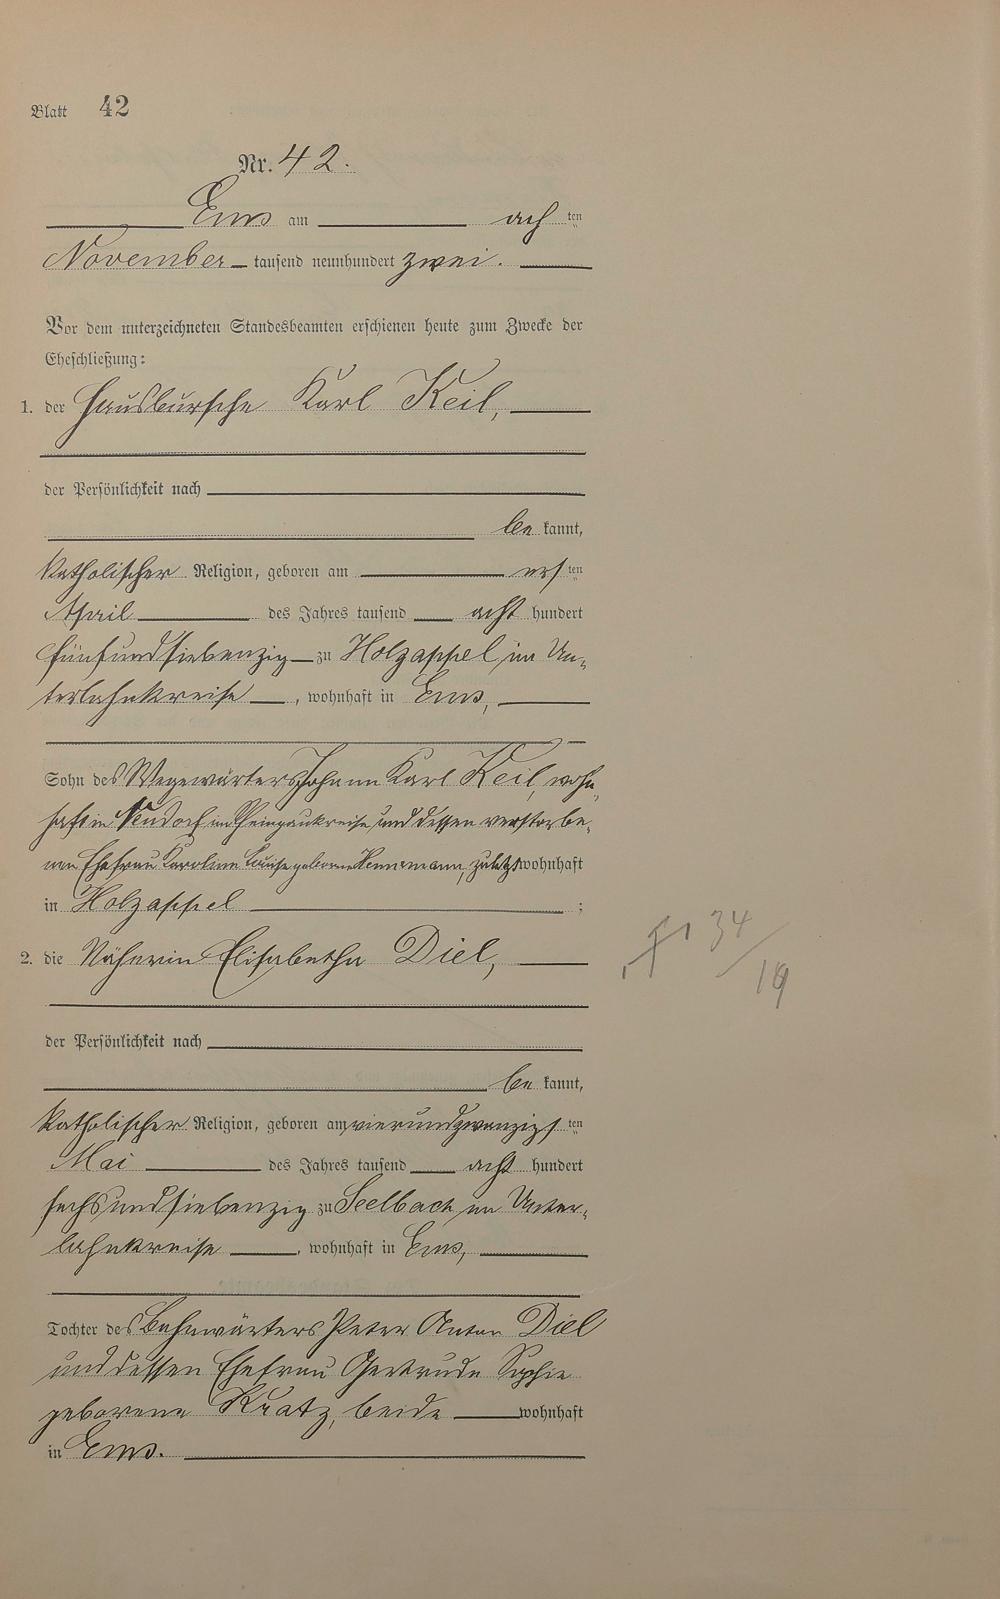 Blatt 42
Nr. 42.
Ems am ach ten
November tausend neunhundert zwei.
Vor dem unterzeichneten Standesbeamten erschienen heute zum Zwecke der
Eheschließung:
1. der Hausbursche Karl Keil,
der Persönlichkeit nach
be kannt,
katholischer Religion, geboren am ers ten
April des Jahres tausend acht hundert
fünfundsiebenzig zu Holzappel im Un-
terlahnkreise, wohnhaft in Ems,
Sohn des Wegewärters Johann Karl Keil, wohn-
haft in Neudorf im Rheingaukreise und dessen verstorbe-
nen Ehefrau Karoline Louise geborene zuletzt wohnhaft
in Holzappel ;
2. die Näherin Elisabetha Diel,
der Persönlichkeit nach
be kannt,
katholischer Religion, geboren am vierundzwanzigs ten
Mai des Jahres tausend acht hundert
sechsundsiebenzig zu Seelbach im Unter-
lahnkreise, wohnhaft in Ems,
Tochter des Bahnwärters Peter Anton Diel
und dessen Ehefrau Gertrude Sophie
geborene Kratz, beide wohnhaft
in Ems.
34
19